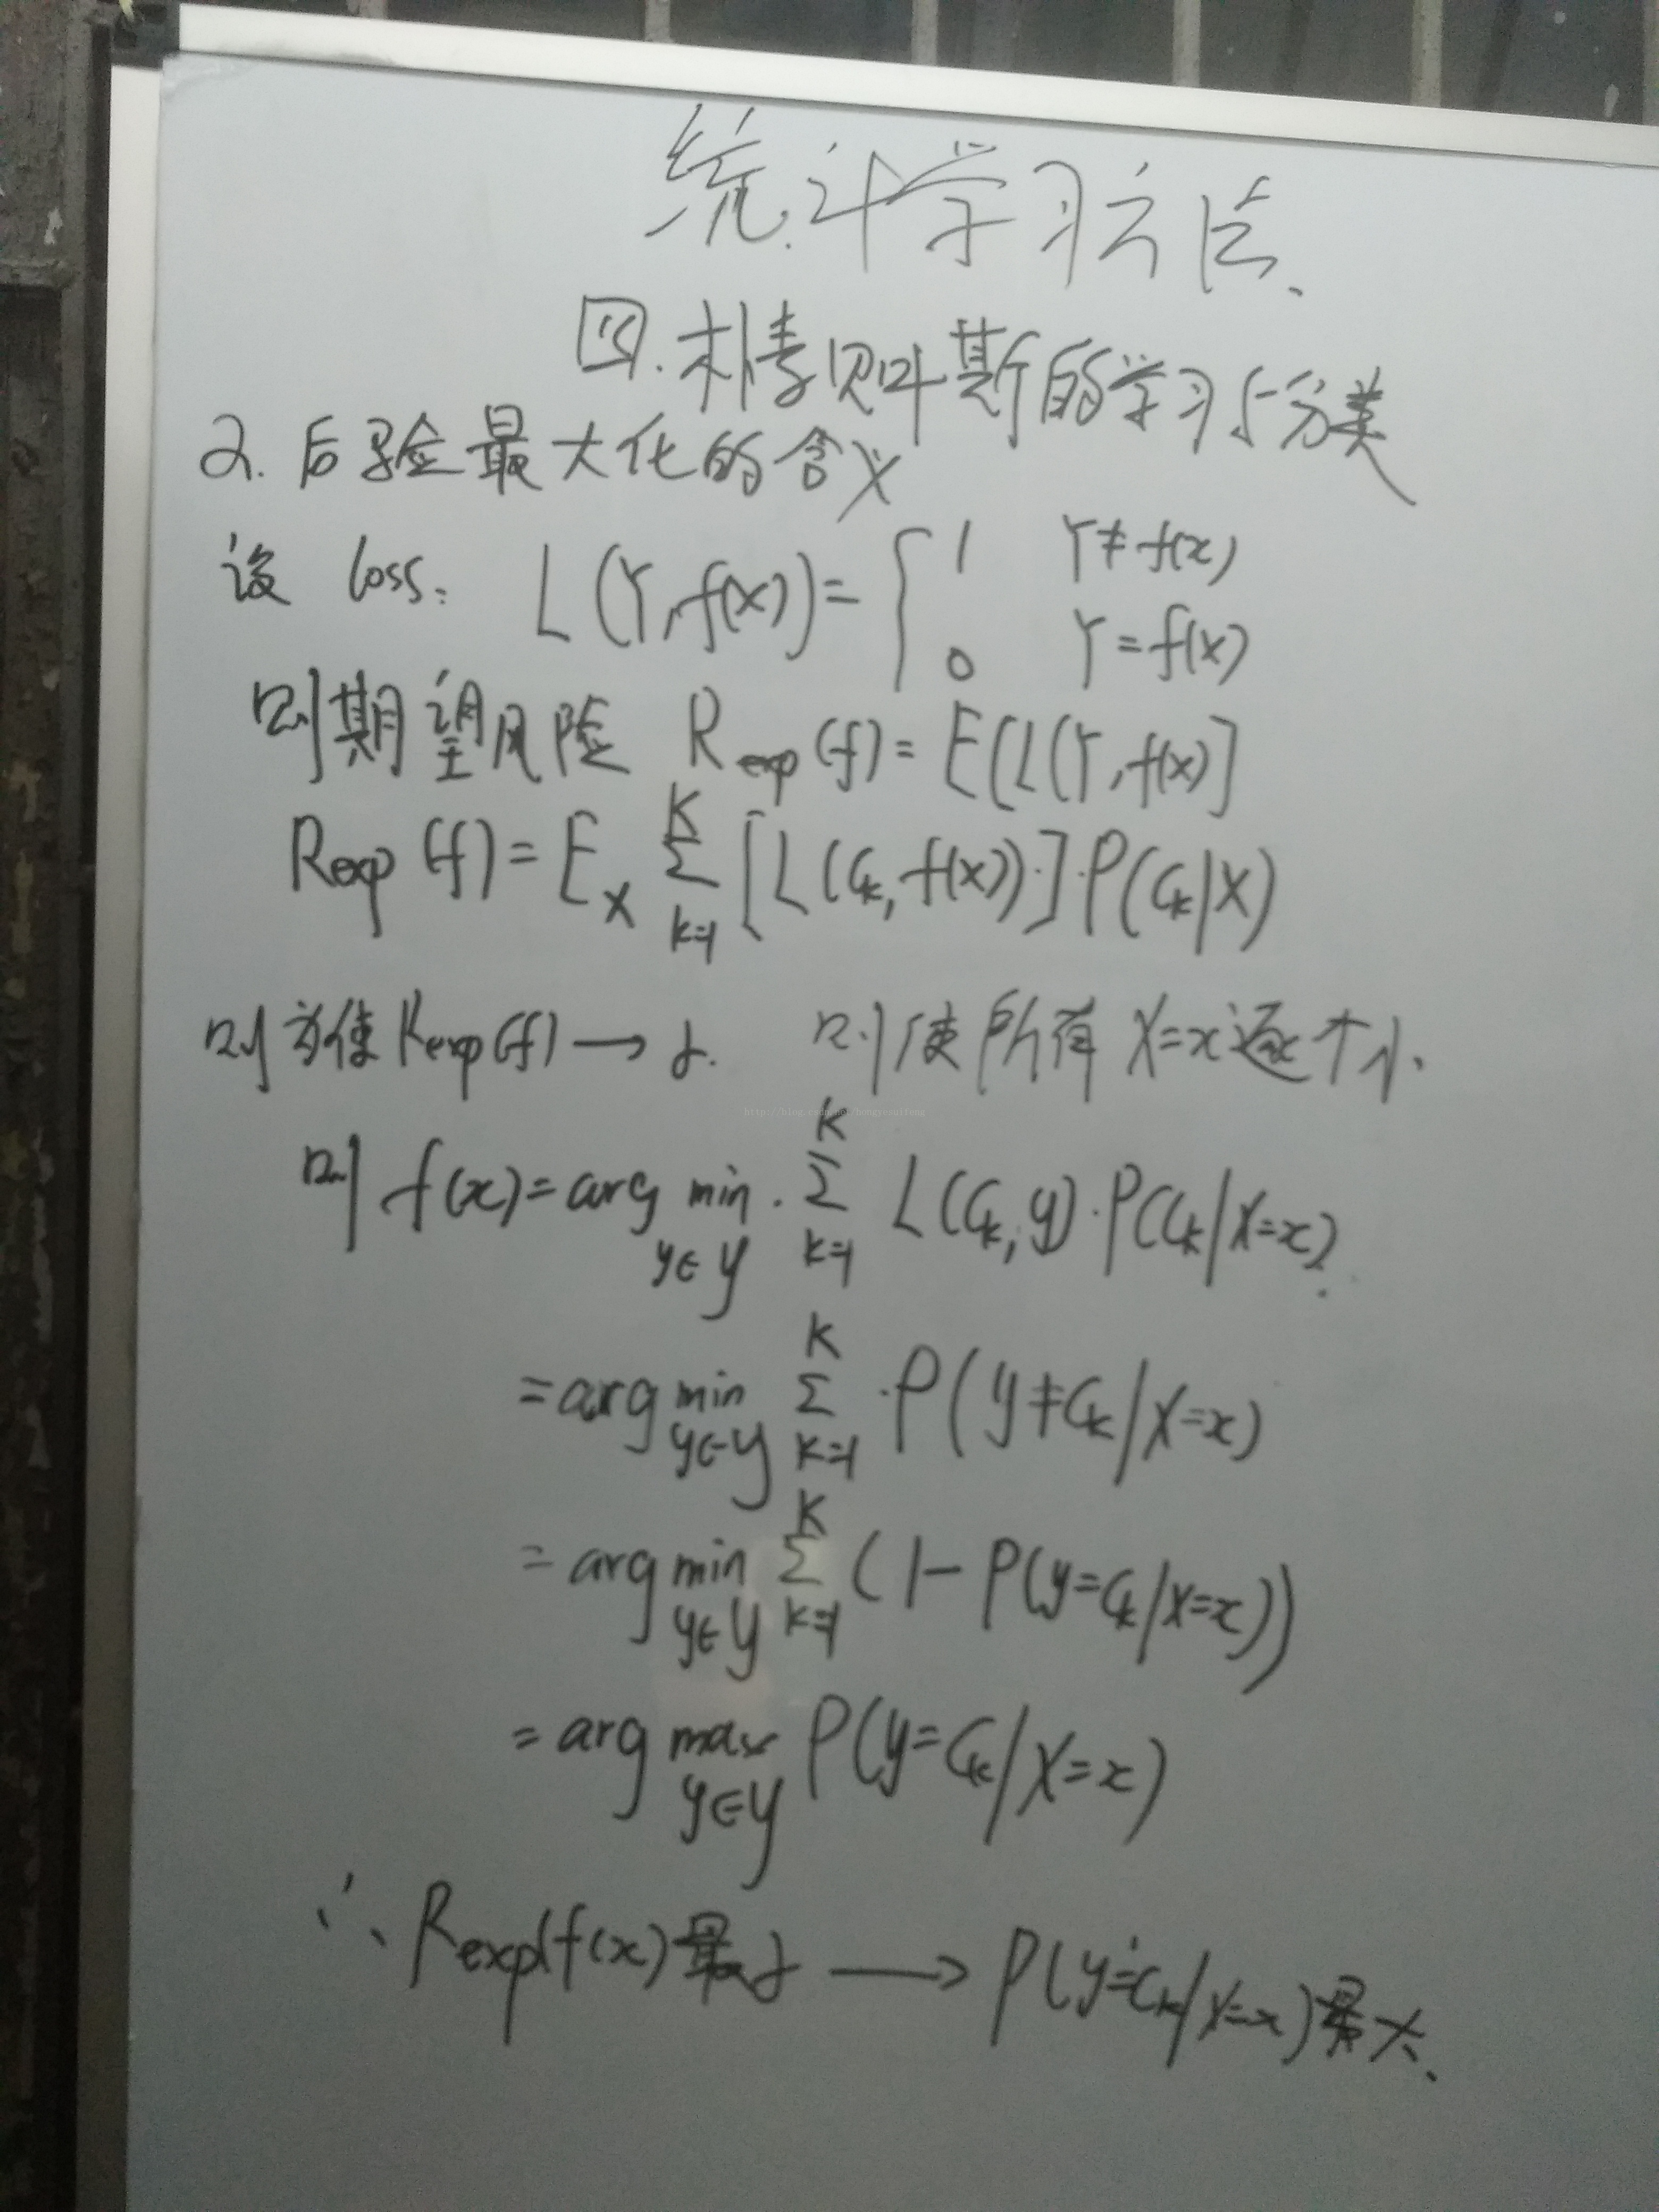 统计学习方法、
四.朴素贝叶斯的学习与分类
2.后验最大化的含义
设 loss: L(Y,f(X))= { 1 Y≠f(x)
0 Y=f(X)
则期望风险 Rexp(f)=E[L(Y,f(X)]
Rexp(f)=E_X Σ_{k=1}^{K} [L(Ck,f(X))·]·P(Ck|X)
则为使Rexp(f)→小. 则使所有 X=x逐个小、
则 f(x)=arg min_{y∈Y} · Σ_{k=1}^{K} L(Ck,y)·P(Ck|X=x).
=arg min_{y∈Y} Σ_{k=1}^{K} ·P(y≠Ck|X=x)
=arg min_{y∈Y} Σ_{k=1}^{K} (1-P(y=Ck|X=x))
=arg max_{y∈Y} P(y=Ck|X=x)
∴ Rexp(f(x)最小 → P(y=Ck|X=x)最大、